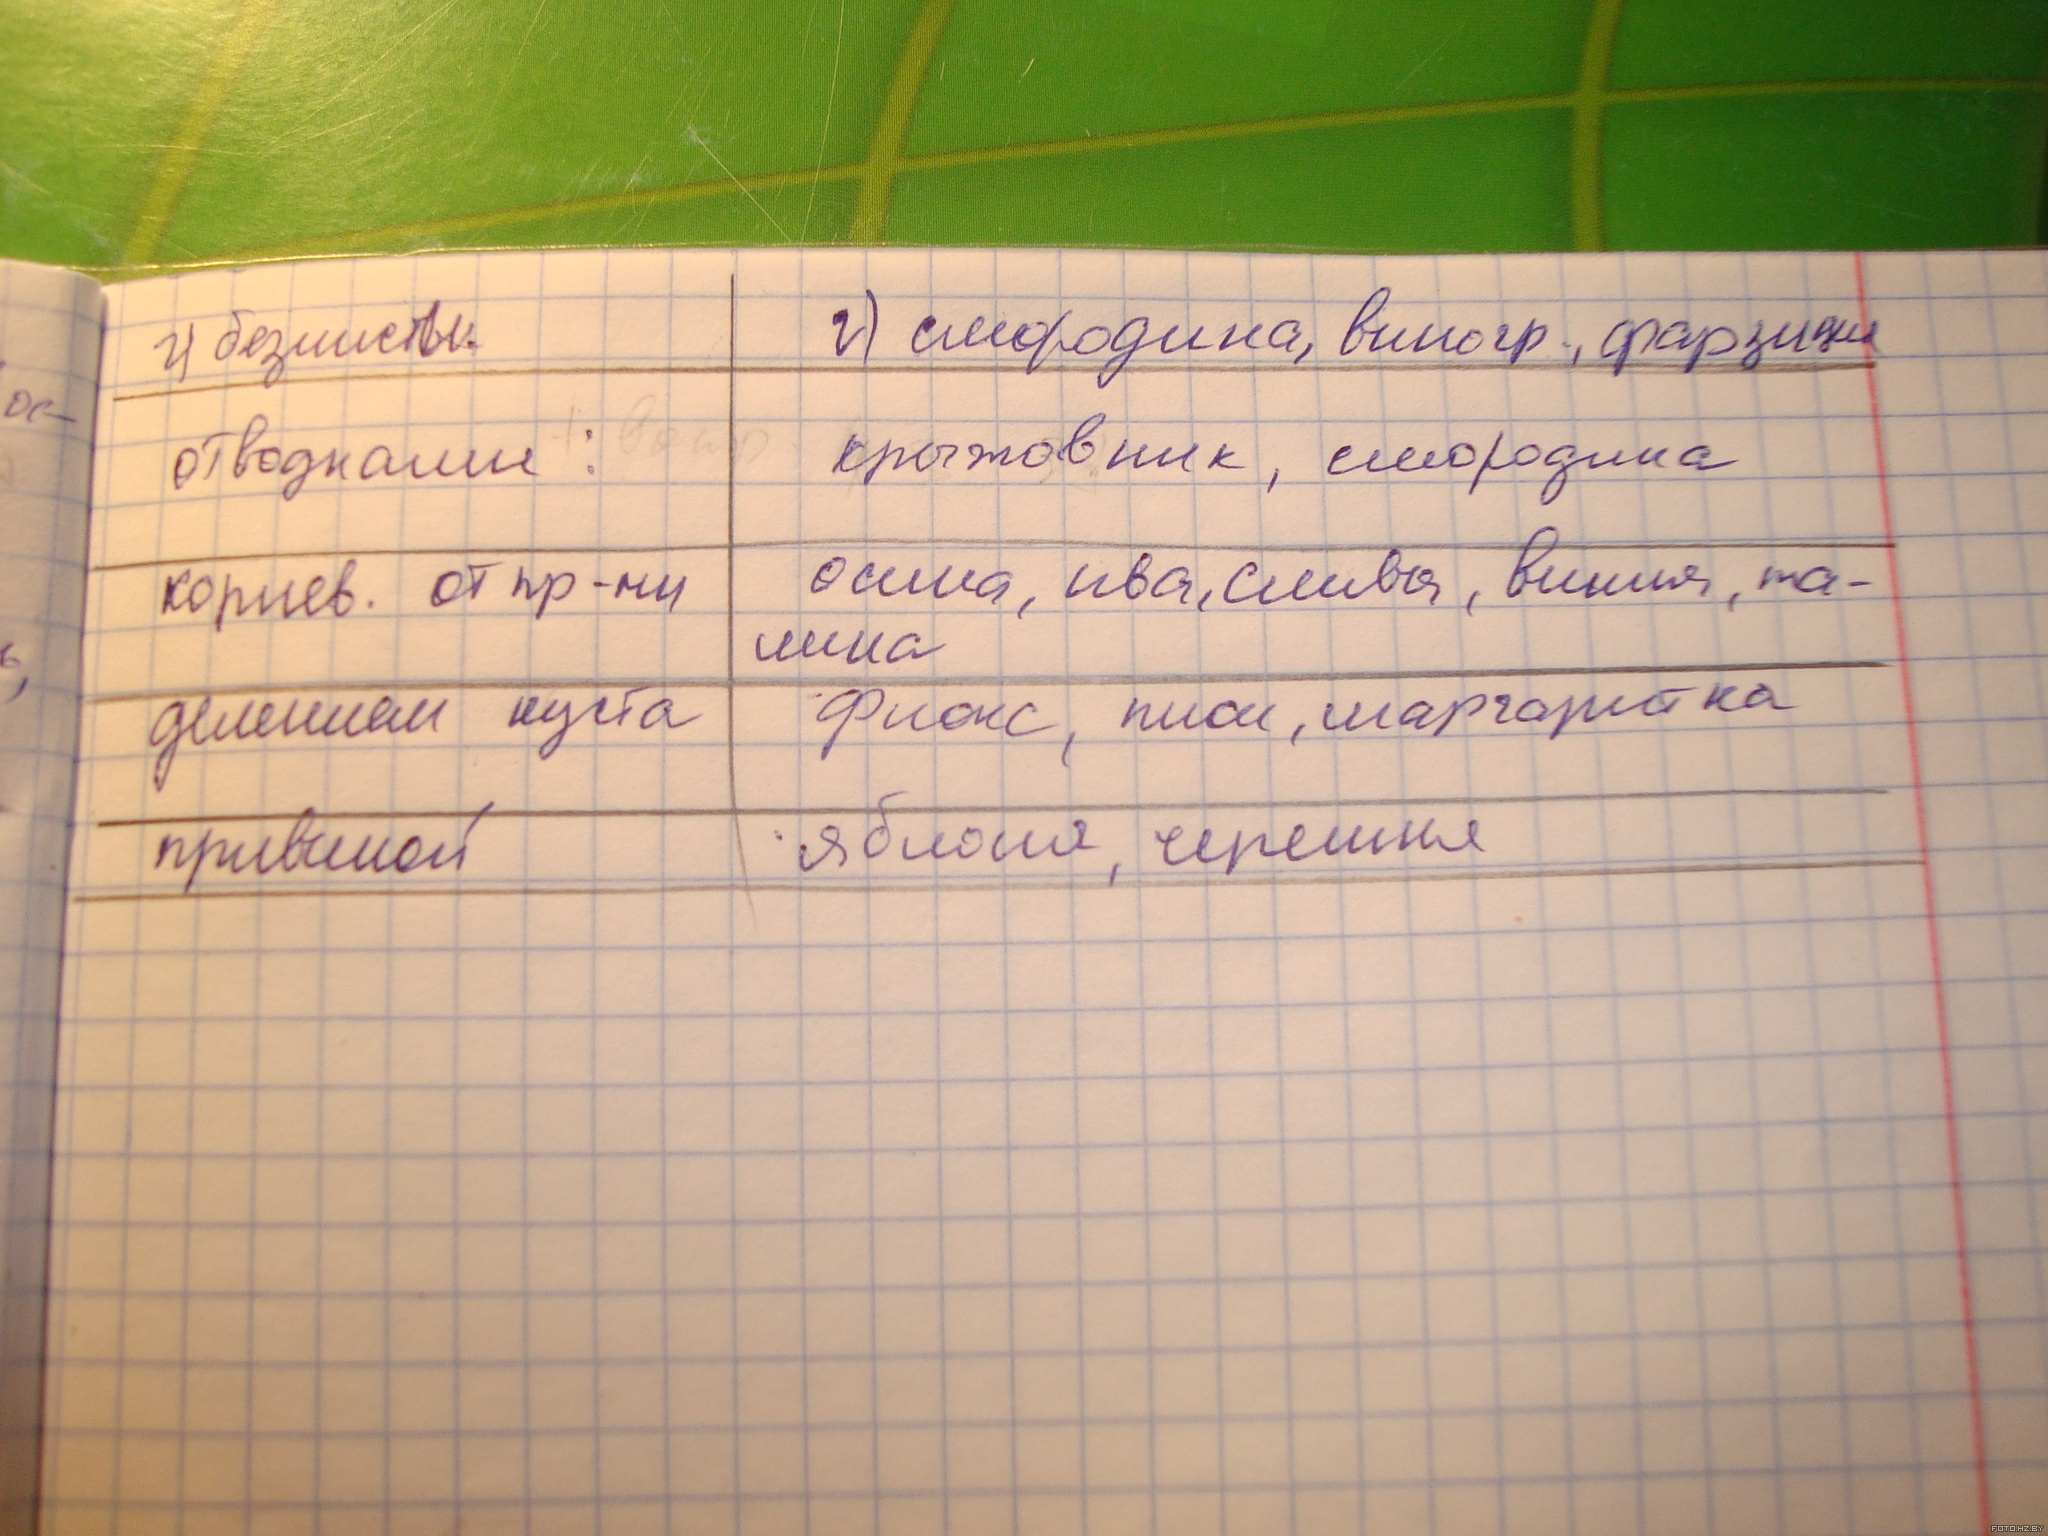 г) безлистн. г) смородина, виногр., фарзиция
ос-
отводками: крыжовник, смородина
корнев. отпр-ми осина, ива, слива, вишня, ма-
ь, лина
делением куста Флокс, пион, маргаритка
прививкой яблоня, черешня
FOTO.HZ.BY